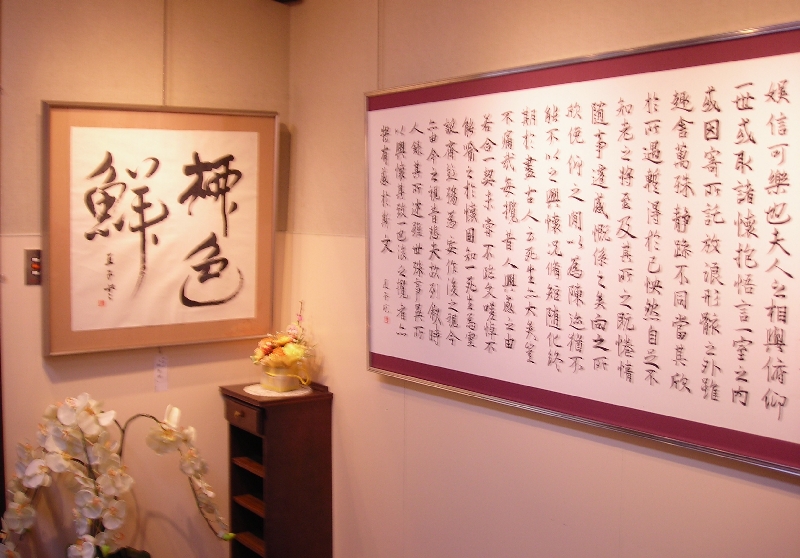 娯信可樂也夫人之相與俯仰
一世或取諸懷抱悟言一室之內
或因寄所託放浪形骸之外雖
趣舍萬殊靜躁不同當其欣
於所遇暫得於己怏然自足不
知老之將至及其所之既惓情
隨事遷感慨係之矣向之所
欣俛仰之閒以為陳迹猶不
能不以之興懷況脩短隨化終
期於盡古人云死生亦大矣豈
不痛哉每攬昔人興感之由
若合一契未嘗不臨文嗟悼不
能喻之於懷固知一死生為虛
誕齊彭殤為妄作後之視今
亦由今之視昔悲夫故列敘時
人錄其所述雖世殊事異所
以興懷其致一也後之攬者亦
將有感於斯文
柳色
鮮